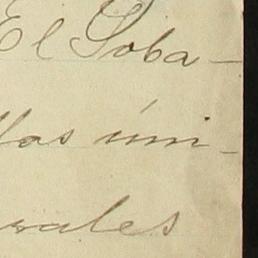 El Soba-
llas úni-
rales